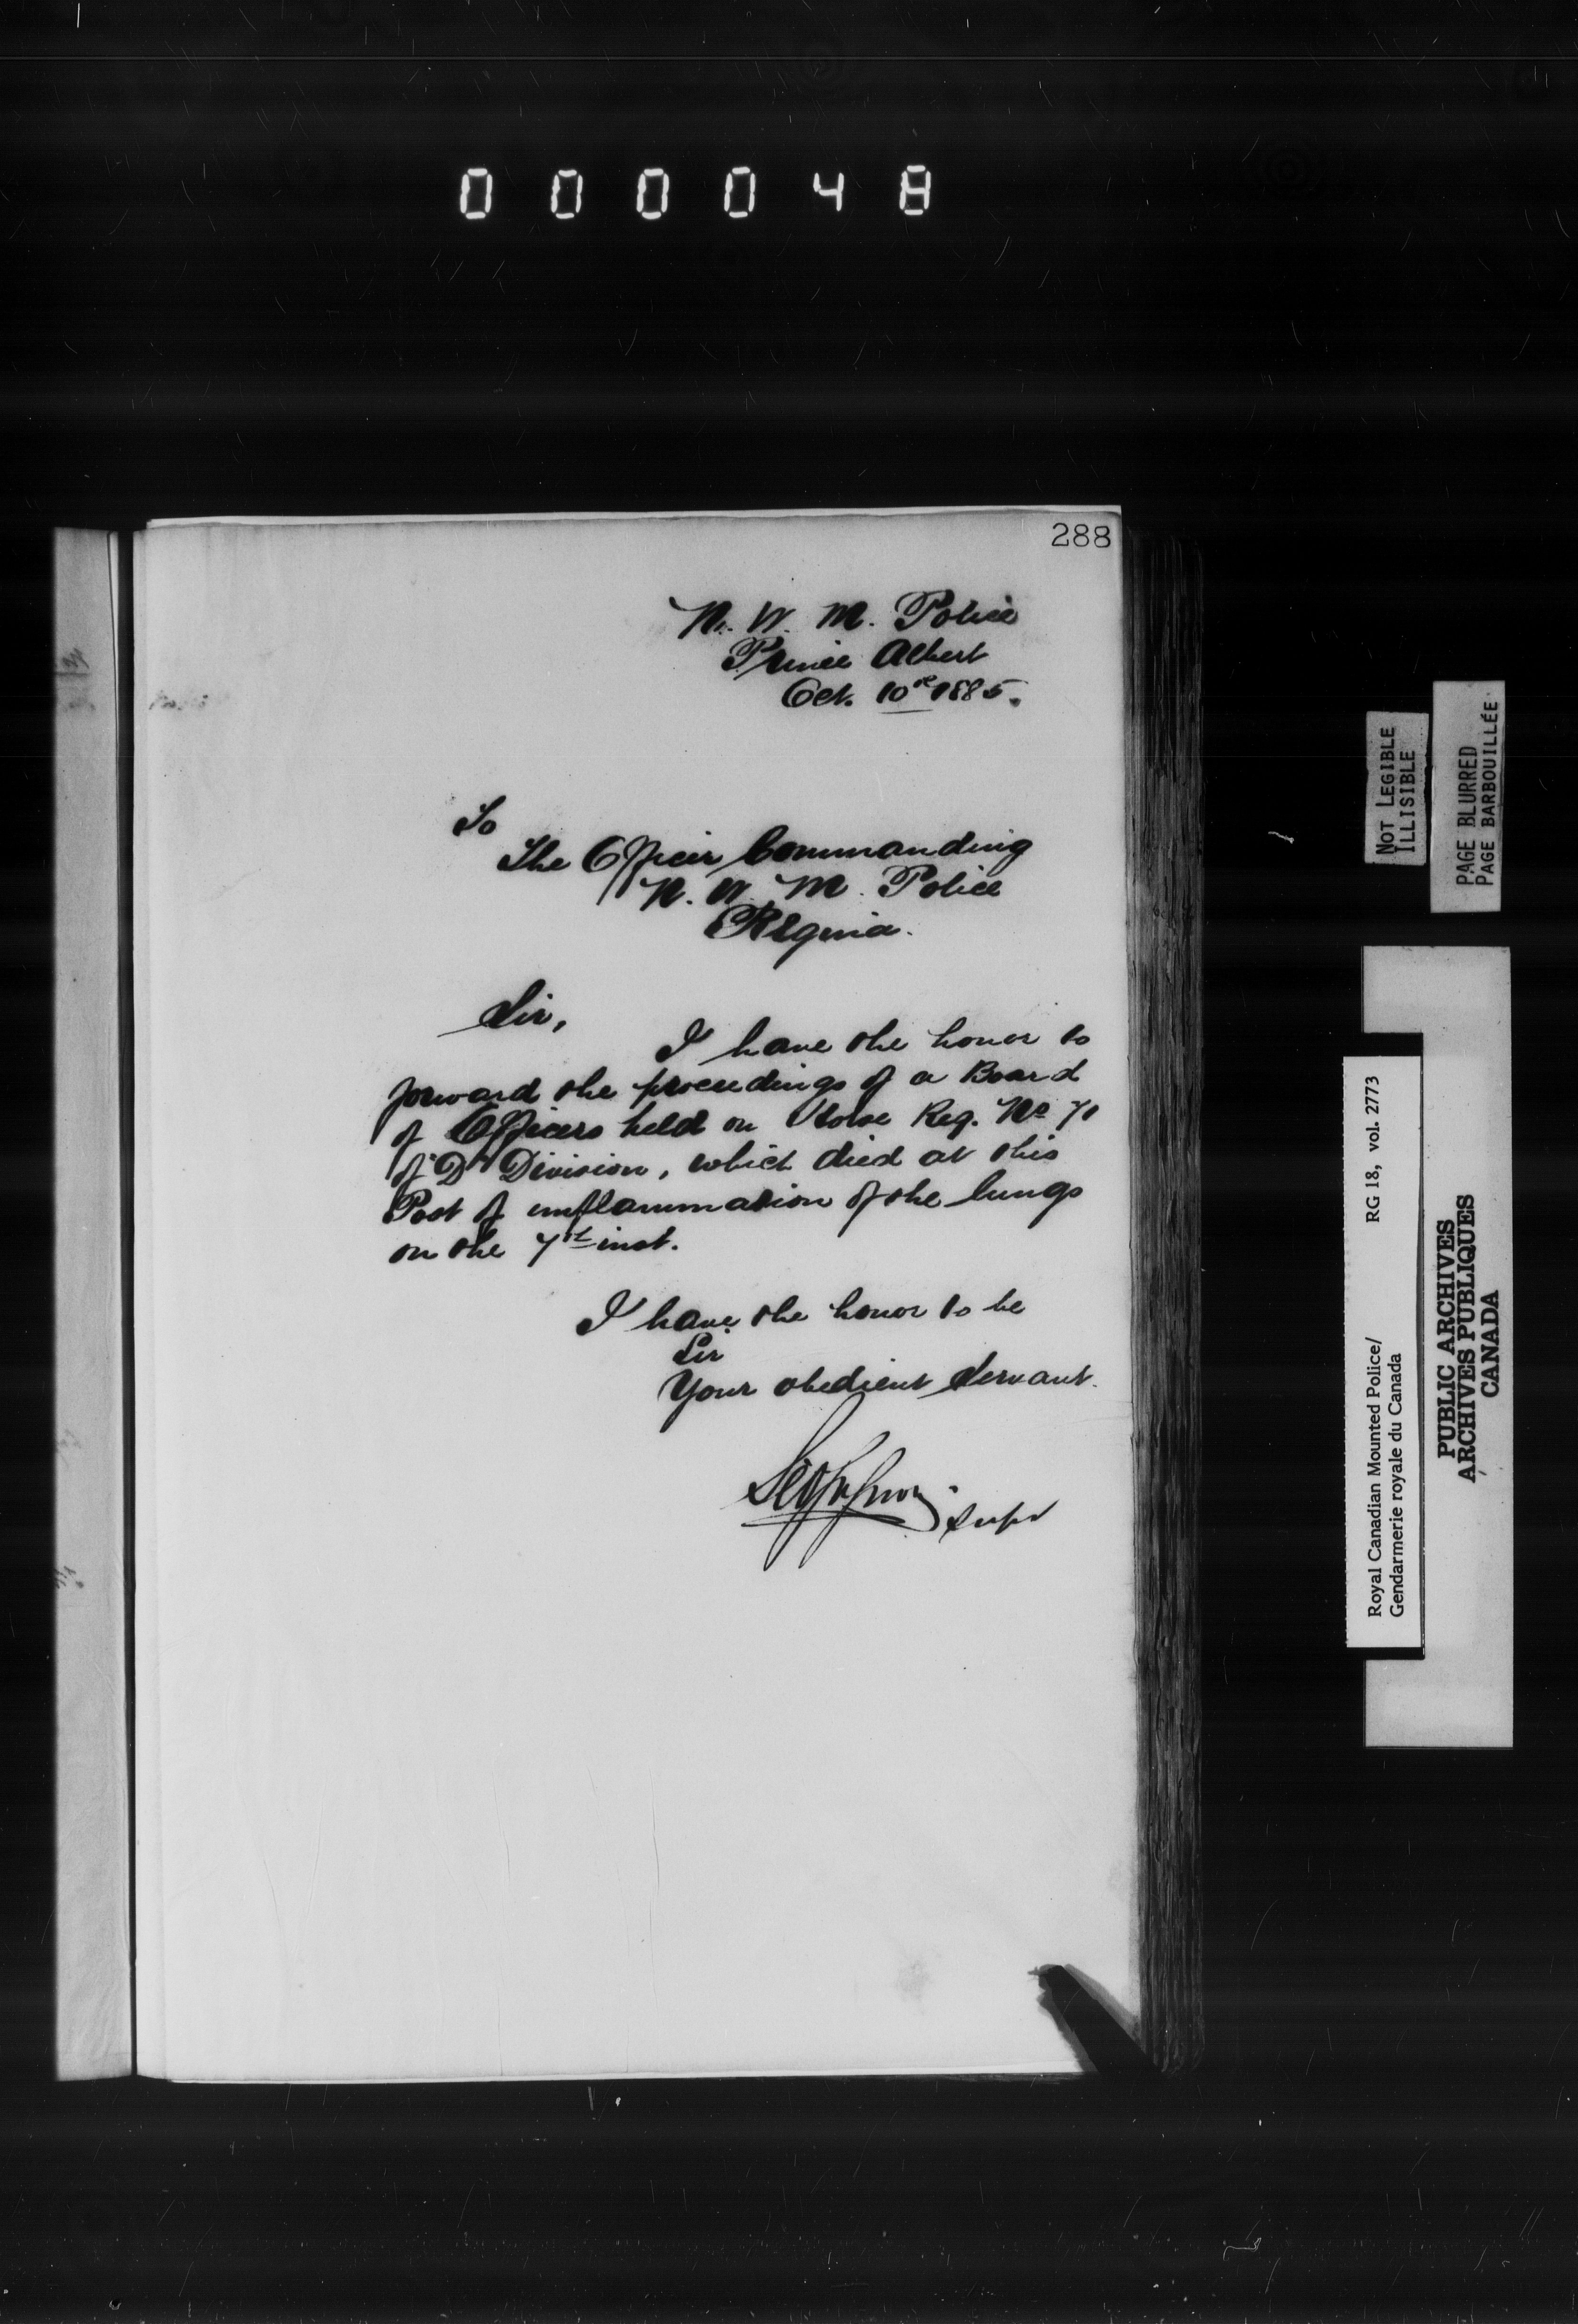 000048
288
N. W. M. Police
Prince Albert
Oct. 10th 1885.
To
The Officer Commanding
N. W. M. Police
Regina.
Sir,
I have the honor to
forward the proceedings of a Board
of Officers held on Horse Reg. No 71
of "D" Division, which died at this
Post of imflammation of the lungs
on the 7th inst.
I have the honor to be
Sir
Your obedient Servant.
Supt
NOT LEGIBLE
ILLISIBLE
PAGE BLURRED
PAGE BARBOUILLÉE
Royal Canadian Mounted Police/ RG 18, vol. 2773
Gendarmerie royale du Canada
PUBLIC ARCHIVES
ARCHIVES PUBLIQUES
CANADA